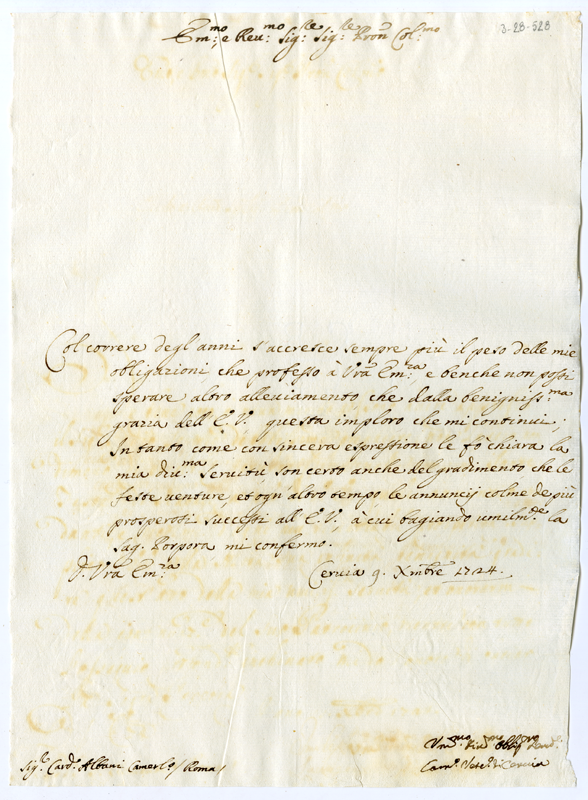 3-28-528
Em:mo e Reu:mo Sig:re Sig:re Pron Col:mo
Col correre degl'anni s'accresce sempre più il peso delle mie
obligazioni, che professo à Vra Em:za e benche non possi
sperare altro alleuiamento che dalla benigniss:ma
grazia dell'E.V. questa imploro che mi continui.
In tanto come con sincera espressione le fò chiara la
mia diu:ma seruitù son certo anche del gradimento che le
feste venture, et ogn'altro tempo le annuncij colme de più
prosperosi successi all'E.V., à cui bagiando umilm:de la
Sag. Porpora mi confermo.
D. Vra Em:za
Ceruia 9. Xmbre 1724.
Sig:r Card. Albani Camerl:o / Roma /
Um:mo
di Ceruia